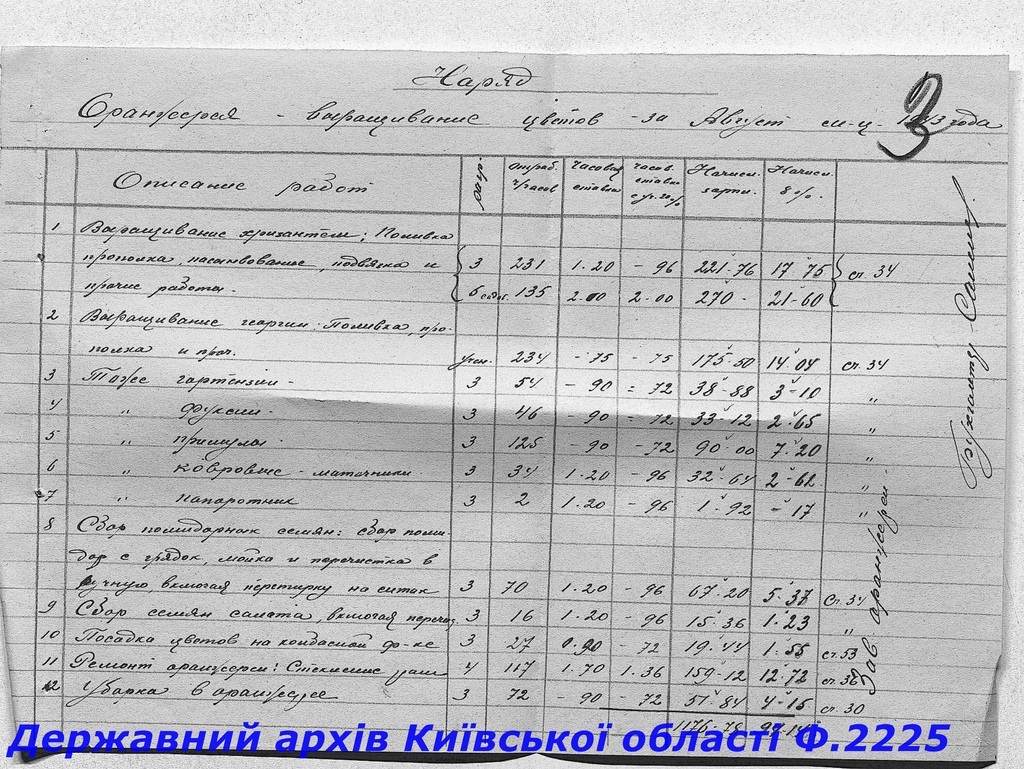 Наряд
Оранжерея - выращивание цветов - за Август м-ц - года
3
Описание работ
разр. отраб. ч/часов часовая ставка часов. ставка с уд. 20% Начисл. зарпл. Начисл. 8%.
1 Выращивание хризантем: Поливка
прополка, пасынкование, подвязка и 3 231 1.20 - 96 221-76 17-75 ст. 34
прочие работы. 135 2.00 2.00 270 - 21-60
2 Выращивание георгин. Поливка, про-
полка и проч. учен. 234 - 75 - 75 175-50 14-04 ст. 34
3 Тоже гортензии - 3 54 - 90 = 72 38-88 3-10 "
4 " фуксии - 3 46 - 90 - 72 33-12 2-65 "
5 " примулы - 3 125 - 90 - 72 90-00 7-20 "
6 " ковровые - маточники 3 34 1.20 - 96 32-64 2-62 "
7 " папоротник 3 2 1.20 - 96 1-92 - 17 "
8 Сбор помидорных семян: сбор поми-
дор с грядок, мойка и перечистка в
ручную, включая перетирку на ситах 3 70 1.20 - 96 67-20 5-37 ст. 34
9 Сбор семян салата, включая 3 16 1.20 - 96 15-36 1-23 "
10 Посадка цветов на ф-ке 3 27 0.90 - 72 19-44 1-55 ст. 53
11 Ремонт оранжереи: Стекление рам 4 117 1.70 1.36 159-12 12-72 ст. 36
12 Уборка в оранжерее 3 72 - 90 - 72 51-84 4-15 ст. 30
1176-78
Зав. оранжерей -
Бухгалтер
Державний архів Київської області Ф.2225